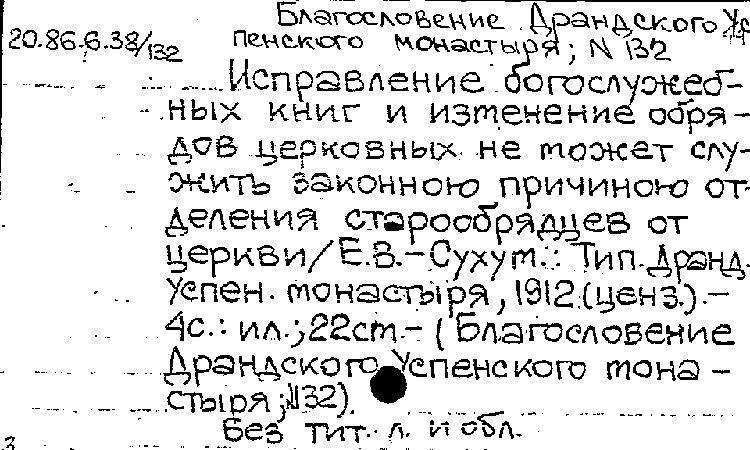 Благословение Драндского Ус
20.86.6.38/132 пенского монастыря; N 132
Исправление богослужеб-
ных книг и изменение обря-
дов церковных не может слу-
жить законною причиною от-
деления старообрядцев от
церкви/Е.В.-Сухум.: Тип. Дранд.
Успен. монастыря, 1912.(ценз.).-
4с.: ил.; 22см.- (Благословение
Драндского Успенского мона-
стыря; N132).
Без тит. л. и обл.
3